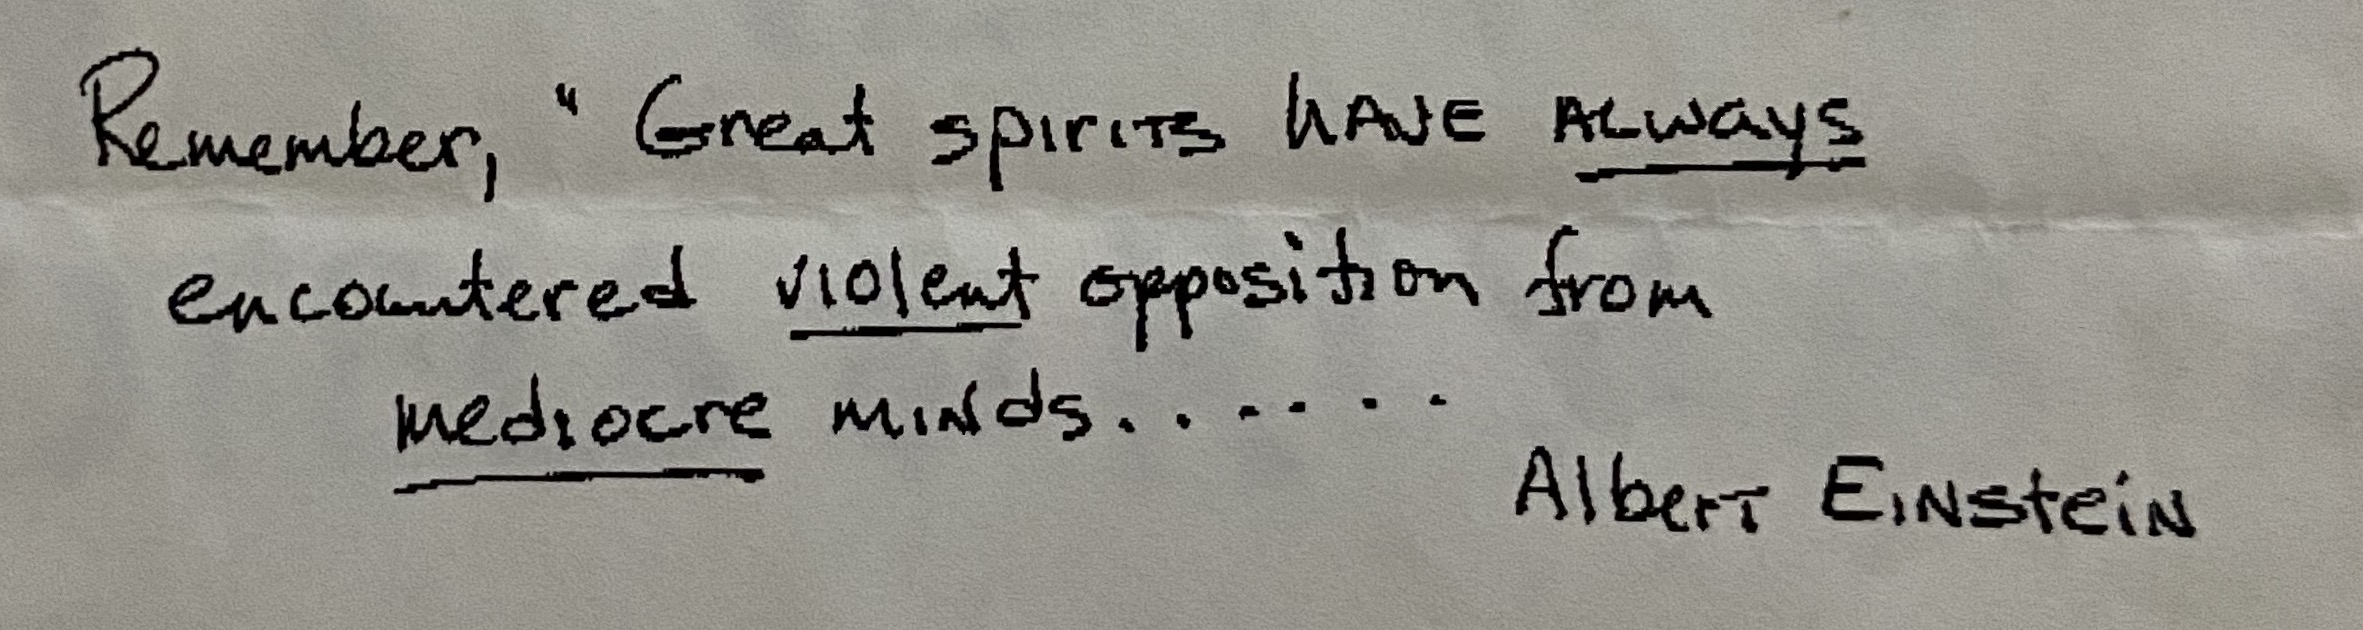 Remember, "Great spirits have always
encountered violent opposition from
mediocre minds.......
Albert Einstein